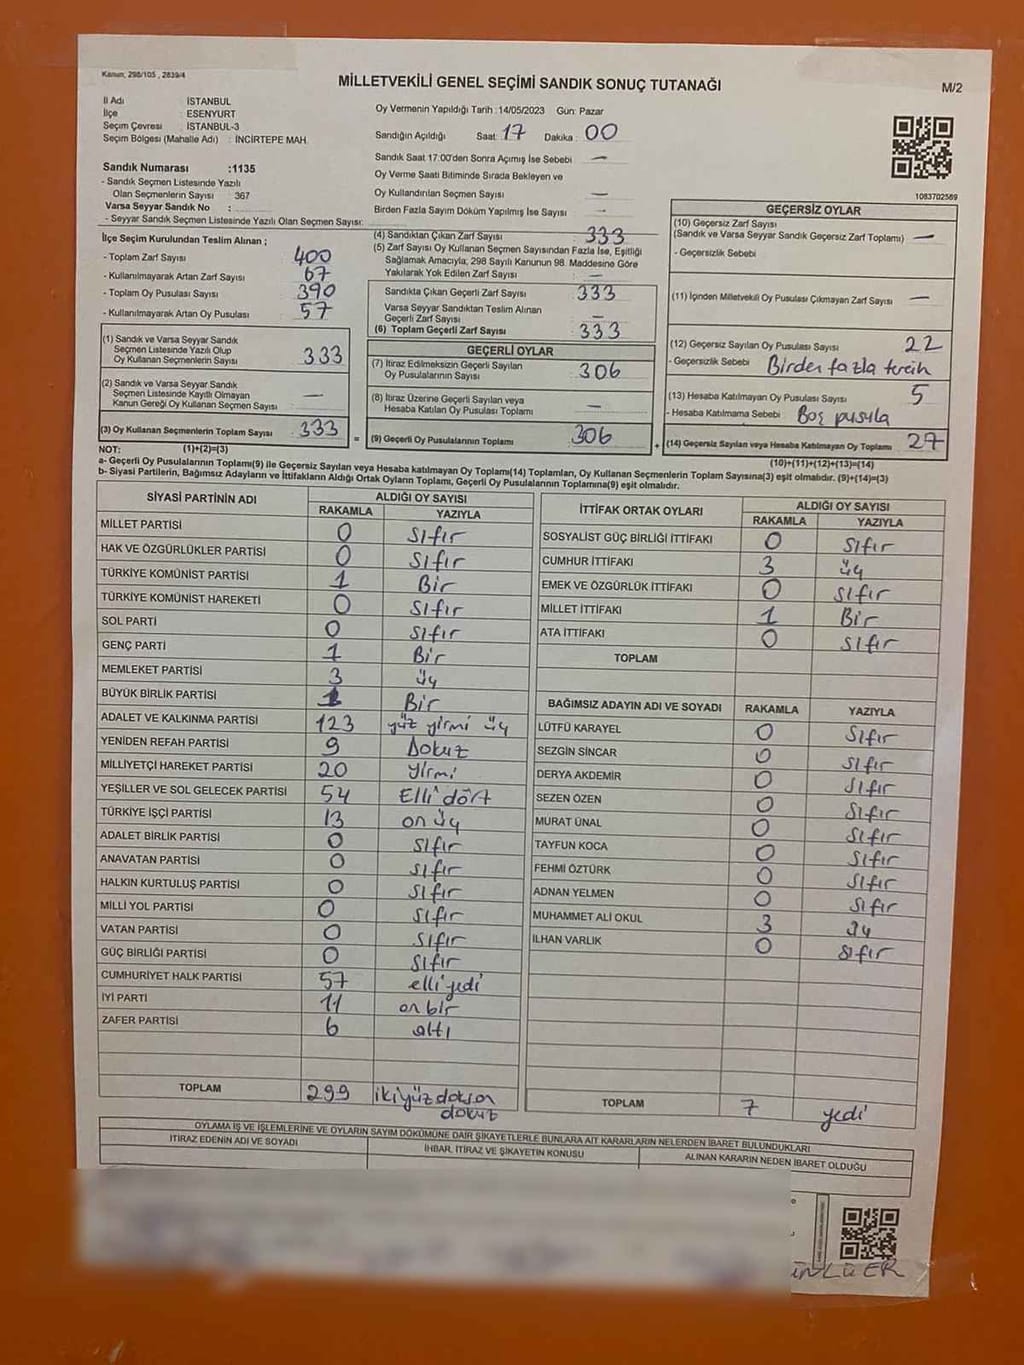 Kanun, 298/105 , 2839/4
MİLLETVEKİLİ GENEL SEÇİMİ SANDIK SONUÇ TUTANAĞI
M/2
İl Adı : İSTANBUL
İlçe : ESENYURT
Seçim Çevresi : İSTANBUL-3
Seçim Bölgesi (Mahalle Adı) : İNCİRTEPE MAH.
Oy Vermenin Yapıldığı Tarih :14/05/2023 Gün: Pazar
Sandığın Açıldığı Saat: 17 Dakika : 00
Sandık Saat 17:00'den Sonra Açımış İse Sebebi —
Oy Verme Saati Bitiminde Sırada Bekleyen ve
Oy Kullandırılan Seçmen Sayısı —
Birden Fazla Sayım Döküm Yapılmış İse Sayısı —
1083702569
Sandık Numarası :1135
- Sandık Seçmen Listesinde Yazılı
Olan Seçmenlerin Sayısı : 367
Varsa Seyyar Sandık No :
- Seyyar Sandık Seçmen Listesinde Yazılı Olan Seçmen Sayısı:
İlçe Seçim Kurulundan Teslim Alınan ;
- Toplam Zarf Sayısı 400
- Kullanılmayarak Artan Zarf Sayısı 67
- Toplam Oy Pusulası Sayısı 390
- Kullanılmayarak Artan Oy Pusulası 57
(1) Sandık ve Varsa Seyyar Sandık
Seçmen Listesinde Yazılı Olup
Oy Kullanan Seçmenlerin Sayısı 333
(2) Sandık ve Varsa Seyyar Sandık
Seçmen Listesinde Kayıtlı Olmayan
Kanun Gereği Oy Kullanan Seçmen Sayısı —
(3) Oy Kullanan Seçmenlerin Toplam Sayısı 333
(1)+(2)=(3)
(4) Sandıktan Çıkan Zarf Sayısı 333
(5) Zarf Sayısı Oy Kullanan Seçmen Sayısından Fazla İse, Eşitliği
Sağlamak Amacıyla; 298 Sayılı Kanunun 98. Maddesine Göre
Yakılarak Yok Edilen Zarf Sayısı —
Sandıkta Çıkan Geçerli Zarf Sayısı 333
Varsa Seyyar Sandıktan Teslim Alınan
Geçerli Zarf Sayısı —
(6) Toplam Geçerli Zarf Sayısı 333
GEÇERLİ OYLAR
(7) İtiraz Edilmeksizin Geçerli Sayılan
Oy Pusulalarının Sayısı 306
(8) İtiraz Üzerine Geçerli Sayılan veya
Hesaba Katılan Oy Pusulası Toplamı —
= (9) Geçerli Oy Pusulalarının Toplamı 306
GEÇERSİZ OYLAR
(10) Geçersiz Zarf Sayısı
(Sandık ve Varsa Seyyar Sandık Geçersiz Zarf Toplamı) —
- Geçersizlik Sebebi
(11) İçinden Milletvekili Oy Pusulası Çıkmayan Zarf Sayısı —
(12) Geçersiz Sayılan Oy Pusulası Sayısı 22
- Geçersizlik Sebebi Birden fazla tercih
(13) Hesaba Katılmayan Oy Pusulası Sayısı 5
- Hesaba Katılmama Sebebi Boş pusula
+ (14) Geçersiz Sayılan veya Hesaba Katılmayan Oy Toplamı 27
(10)+(11)+(12)+(13)=(14)
NOT:
a- Geçerli Oy Pusulalarının Toplamı(9) ile Geçersiz Sayılan veya Hesaba katılmayan Oy Toplamı(14) Toplamları, Oy Kullanan Seçmenlerin Toplam Sayısına(3) eşit olmalıdır. (9)+(14)=(3)
b- Siyasi Partilerin, Bağımsız Adayların ve İttifakların Aldığı Ortak Oyların Toplamı, Geçerli Oy Pusulalarının Toplamına(9) eşit olmalıdır.
SİYASİ PARTİNİN ADI ALDIĞI OY SAYISI
RAKAMLA YAZIYLA
MİLLET PARTİSİ 0 Sıfır
HAK VE ÖZGÜRLÜKLER PARTİSİ 0 Sıfır
TÜRKİYE KOMÜNİST PARTİSİ 1 Bir
TÜRKİYE KOMÜNİST HAREKETİ 0 Sıfır
SOL PARTİ 0 Sıfır
GENÇ PARTİ 1 Bir
MEMLEKET PARTİSİ 3 üç
BÜYÜK BİRLİK PARTİSİ 1 Bir
ADALET VE KALKINMA PARTİSİ 123 yüz yirmi üç
YENİDEN REFAH PARTİSİ 9 Dokuz
MİLLİYETÇİ HAREKET PARTİSİ 20 yirmi
YEŞİLLER VE SOL GELECEK PARTİSİ 54 Elli dört
TÜRKİYE İŞÇİ PARTİSİ 13 on üç
ADALET BİRLİK PARTİSİ 0 Sıfır
ANAVATAN PARTİSİ 0 Sıfır
HALKIN KURTULUŞ PARTİSİ 0 Sıfır
MİLLİ YOL PARTİSİ 0 Sıfır
VATAN PARTİSİ 0 Sıfır
GÜÇ BİRLİĞİ PARTİSİ 0 Sıfır
CUMHURİYET HALK PARTİSİ 57 elli yedi
İYİ PARTİ 11 on bir
ZAFER PARTİSİ 6 altı
TOPLAM 299 ikiyüz doksan
dokuz
İTTİFAK ORTAK OYLARI ALDIĞI OY SAYISI
RAKAMLA YAZIYLA
SOSYALİST GÜÇ BİRLİĞİ İTTİFAKI 0 Sıfır
CUMHUR İTTİFAKI 3 üç
EMEK VE ÖZGÜRLÜK İTTİFAKI 0 Sıfır
MİLLET İTTİFAKI 1 Bir
ATA İTTİFAKI 0 Sıfır
TOPLAM
BAĞIMSIZ ADAYIN ADI VE SOYADI RAKAMLA YAZIYLA
LÜTFÜ KARAYEL 0 Sıfır
SEZGİN SİNCAR 0 Sıfır
DERYA AKDEMİR 0 Sıfır
SEZEN ÖZEN 0 Sıfır
MURAT ÜNAL 0 Sıfır
TAYFUN KOCA 0 Sıfır
FEHMİ ÖZTÜRK 0 Sıfır
ADNAN YELMEN 0 Sıfır
MUHAMMET ALİ OKUL 3 üç
İLHAN VARLIK 0 Sıfır
TOPLAM 7 yedi
OYLAMA İŞ VE İŞLEMLERİNE VE OYLARIN SAYIM DÖKÜMÜNE DAİR ŞİKAYETLERLE BUNLARA AİT KARARLARIN NELERDEN İBARET BULUNDUKLARI
İTİRAZ EDENİN ADI VE SOYADI İHBAR, İTİRAZ VE ŞİKAYETİN KONUSU ALINAN KARARIN NEDEN İBARET OLDUĞU